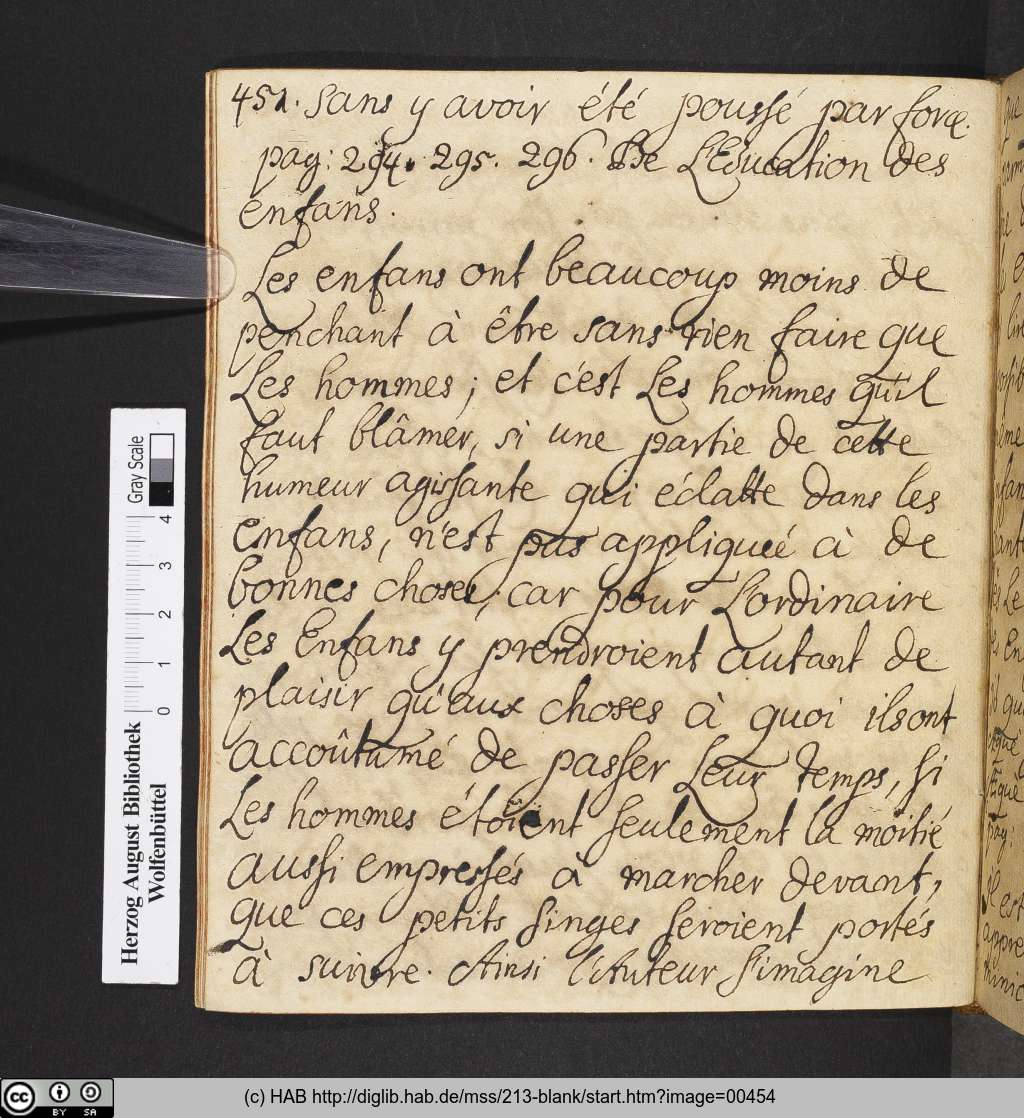 451. sans y avoir été poussé par force.
pag: 294. 295. 296. De L'Education des
enfans.
Les enfans ont beaucoup moins de
penchant à être sans rien faire que
Les hommes; et c'est Les hommes qu'il
faut blâmer, si une partie de cette
humeur agissante qui éclatte dans les
enfans, n'est pas appliqueé à de
bonnes choses; car pour L'ordinaire
Les Enfans y prendroient autant de
plaisir qu'aux choses à quoi ils ont
accoûtumé de passer Leur temps, si
Les hommes étoient seulement la moitié
aussi empressés a marcher devant,
que ces petits singes seroient portés
à suivre. Ainsi l'Auteur s'imagine
Herzog August Bibliothek
Wolfenbüttel
0 1 2 3 4
Gray Scale
cc BY SA
(c) HAB http://diglib.hab.de/mss/213-blank/start.htm?image=00454